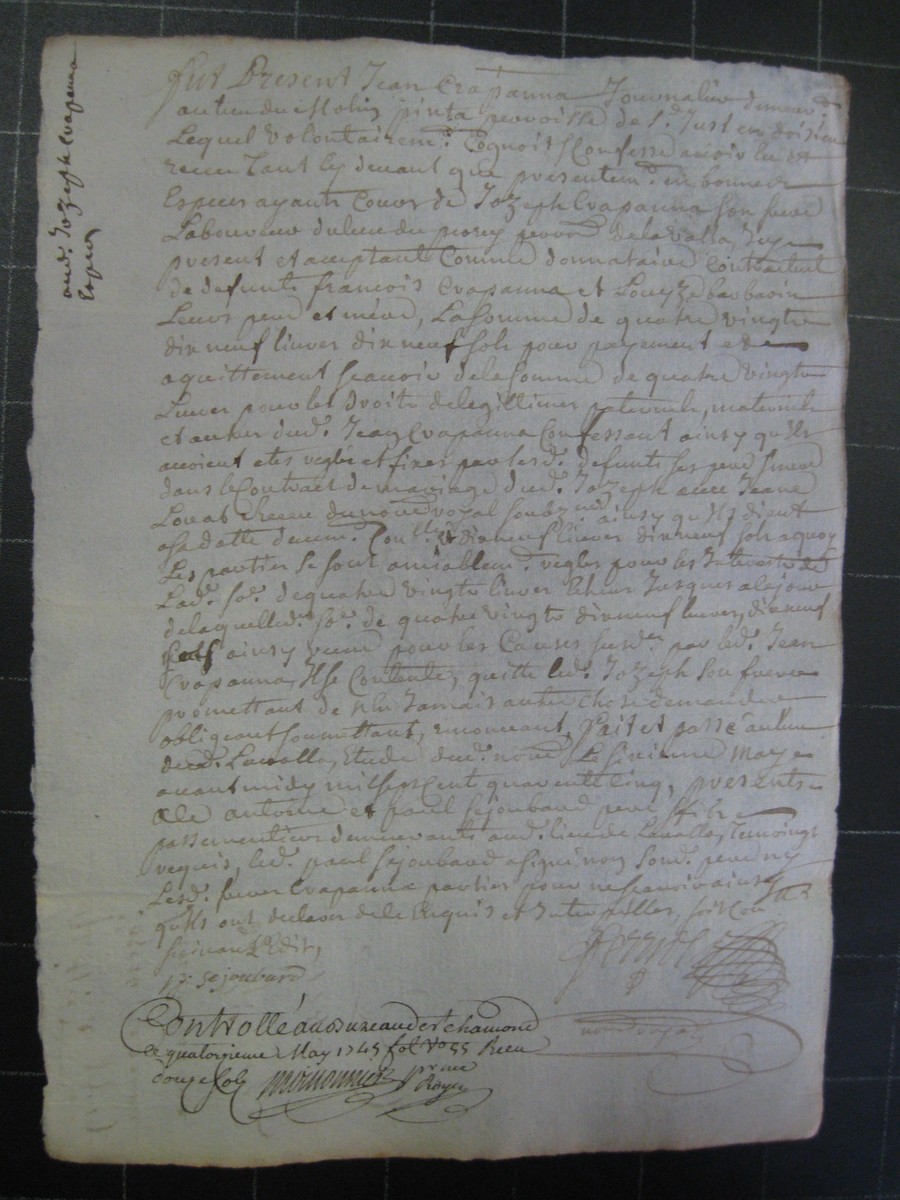 aud. Jozeph Crapanna
Expon
fut Present Jean Crapanna Journalier demeur.
au lieu du Molin pinta parroisse de St. Just en doisieu
Lequel Volontairem.t Cognoit & Confesse avoir heu et
receu tant cy devant que presentem.t en bonnes
Especes ayants Cours de Jozeph Crapanna son frere
Laboureur du lieu du parroi. de la Valla, Icy
present et acceptant Comme donnataire Contractuel
de defunts francois Crapanna et Louyze barbarin
Leurs pere et mére, La Somme de quatre vingts
dix neuf livres dix neuf sols pour payement et
aquittement scavoir de la Somme de quatre vingts
Livres pour les droits de legittimes paternels, maternels
et autres dud. Jean Crapanna Confessant ainsy qu'ils
avoient etés reglés et fixés par lesd. defunts ses pere & mere
dans le Contract de mariage dud. Jozeph avec Jeane
Louat Receu du no.re royal soub.né ainsy qu'ils dient
a sa datte deuem.t Con.llé & dix neuf livres dix neuf sols a quoy
Les parties se sont amiablem.t reglés pour les Interests de
Lad. so.e de quatre vingts livres Jusques a le jour
de laquelled. so.e de quatre vingts dix neuf livres, dix neuf
sols ainsy receue pour les Causes susd.es par led. Jean
Crapanna, Il se Contente, quitte led. Jozeph Son frere
promettant de n'luy Jamais autre Chose demander
obligeant soumettant, renonceant, fait et passé au lieu
dud. Lavalla, Etude dud. no.re Le sixieme May
avant midy mil sept cent quarente Cinq, presents
Antoine et paul sejoubard pere & fils
passementiers demeurants aud. lieu de Lavalla, temoings
requis, led. paul sejoubard a signé non sond. pere ny
Lesd. freres Crapanna parties pour ne scavoir ainsy
qu'ils ont declarer de le Enquis et Interpellés, soit Con.llé
suivant L'Edit,
p: sejoubard
no.re royal
Controllé au Bureau de st chamond
le quatorzieme May 1745 fol Vo 55 Receu
douze sols